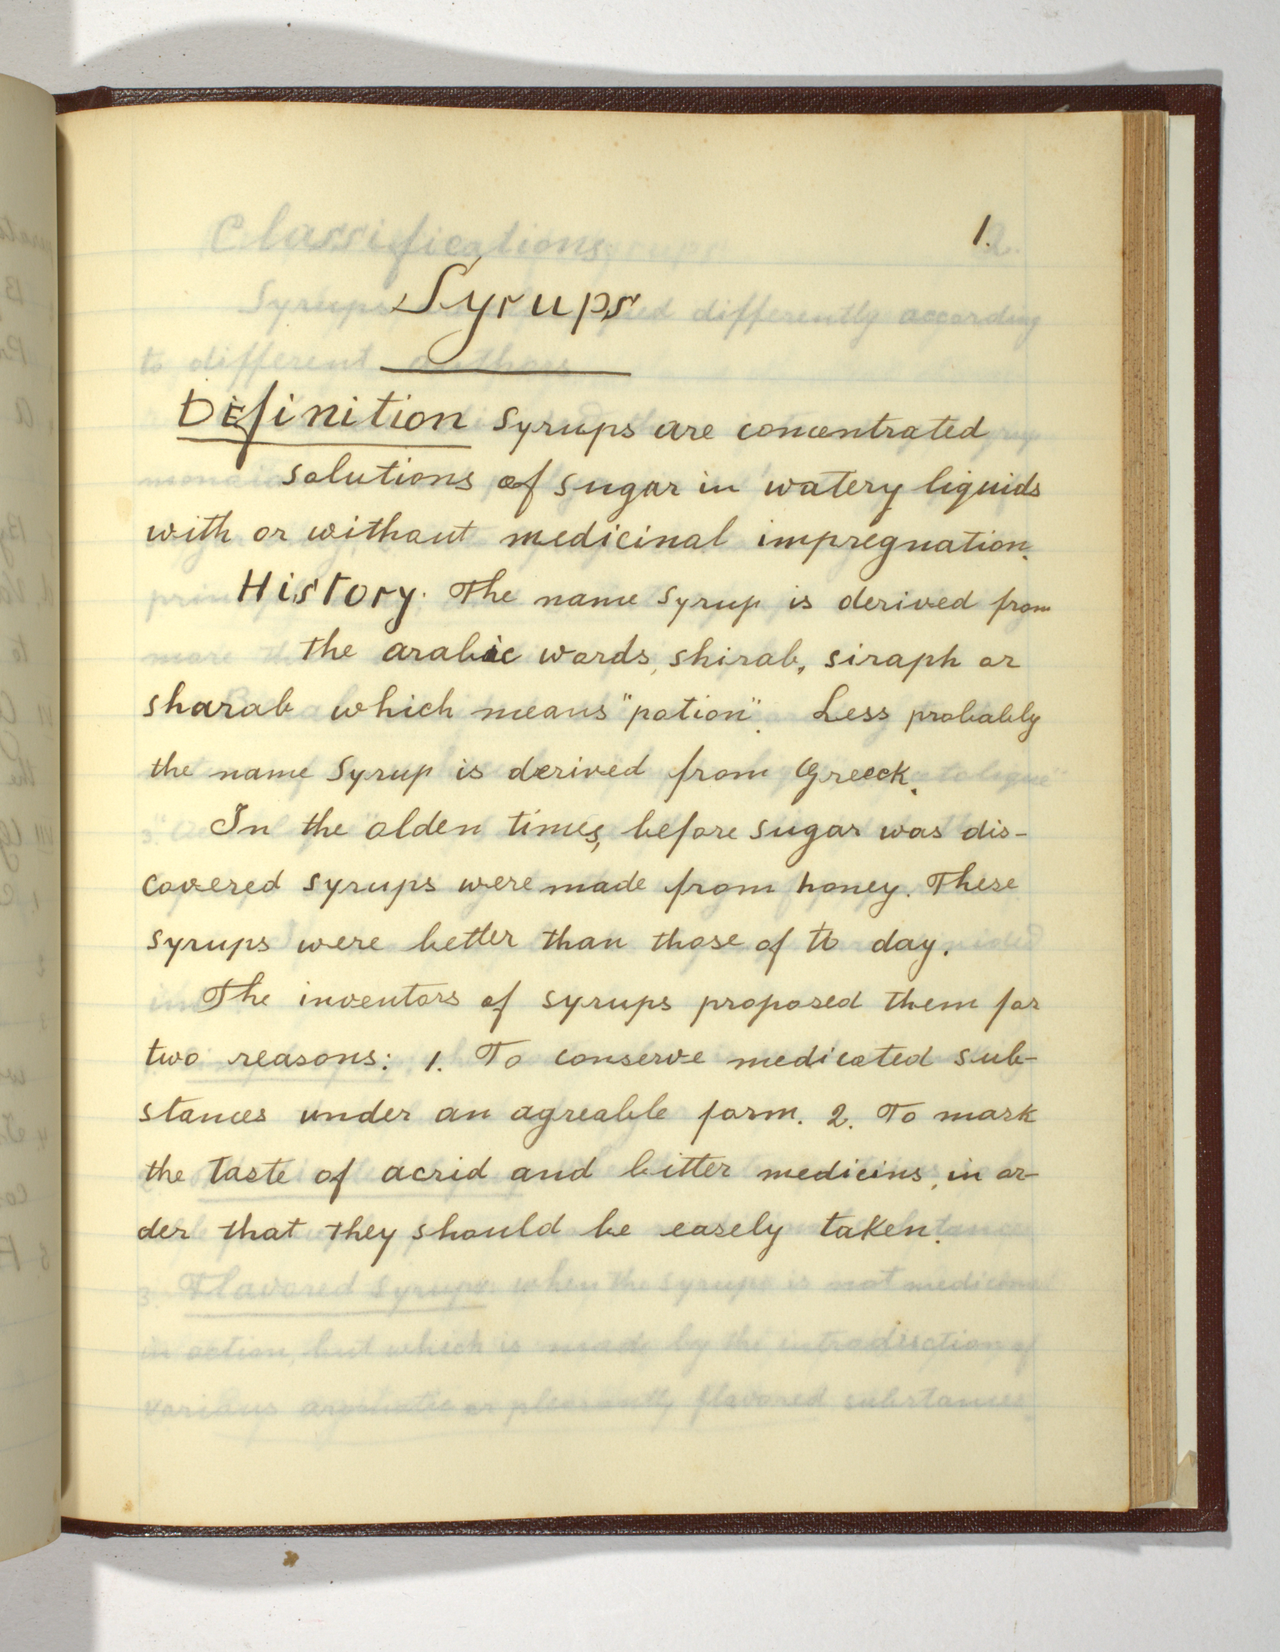 1.
Syrups
Definition Syrups are concentrated
solutions of sugar in watery liquids
with or without medicinal impregnation.
History. The name syrup is derived from
the arabic words, shirab, siraph or
sharab which means "potion". Less probably
the name Syrup is derived from Greeck.
In the olden times, before sugar was dis-
covered syrups were made from honey. These
syrups were better than those of to day.
The inventors of syrups proposed them for
two reasons: 1. To conserve medicated sub-
stances under an agreable form. 2. To mark
the taste of acrid and bitter medicins, in or-
der that they should be easely taken.